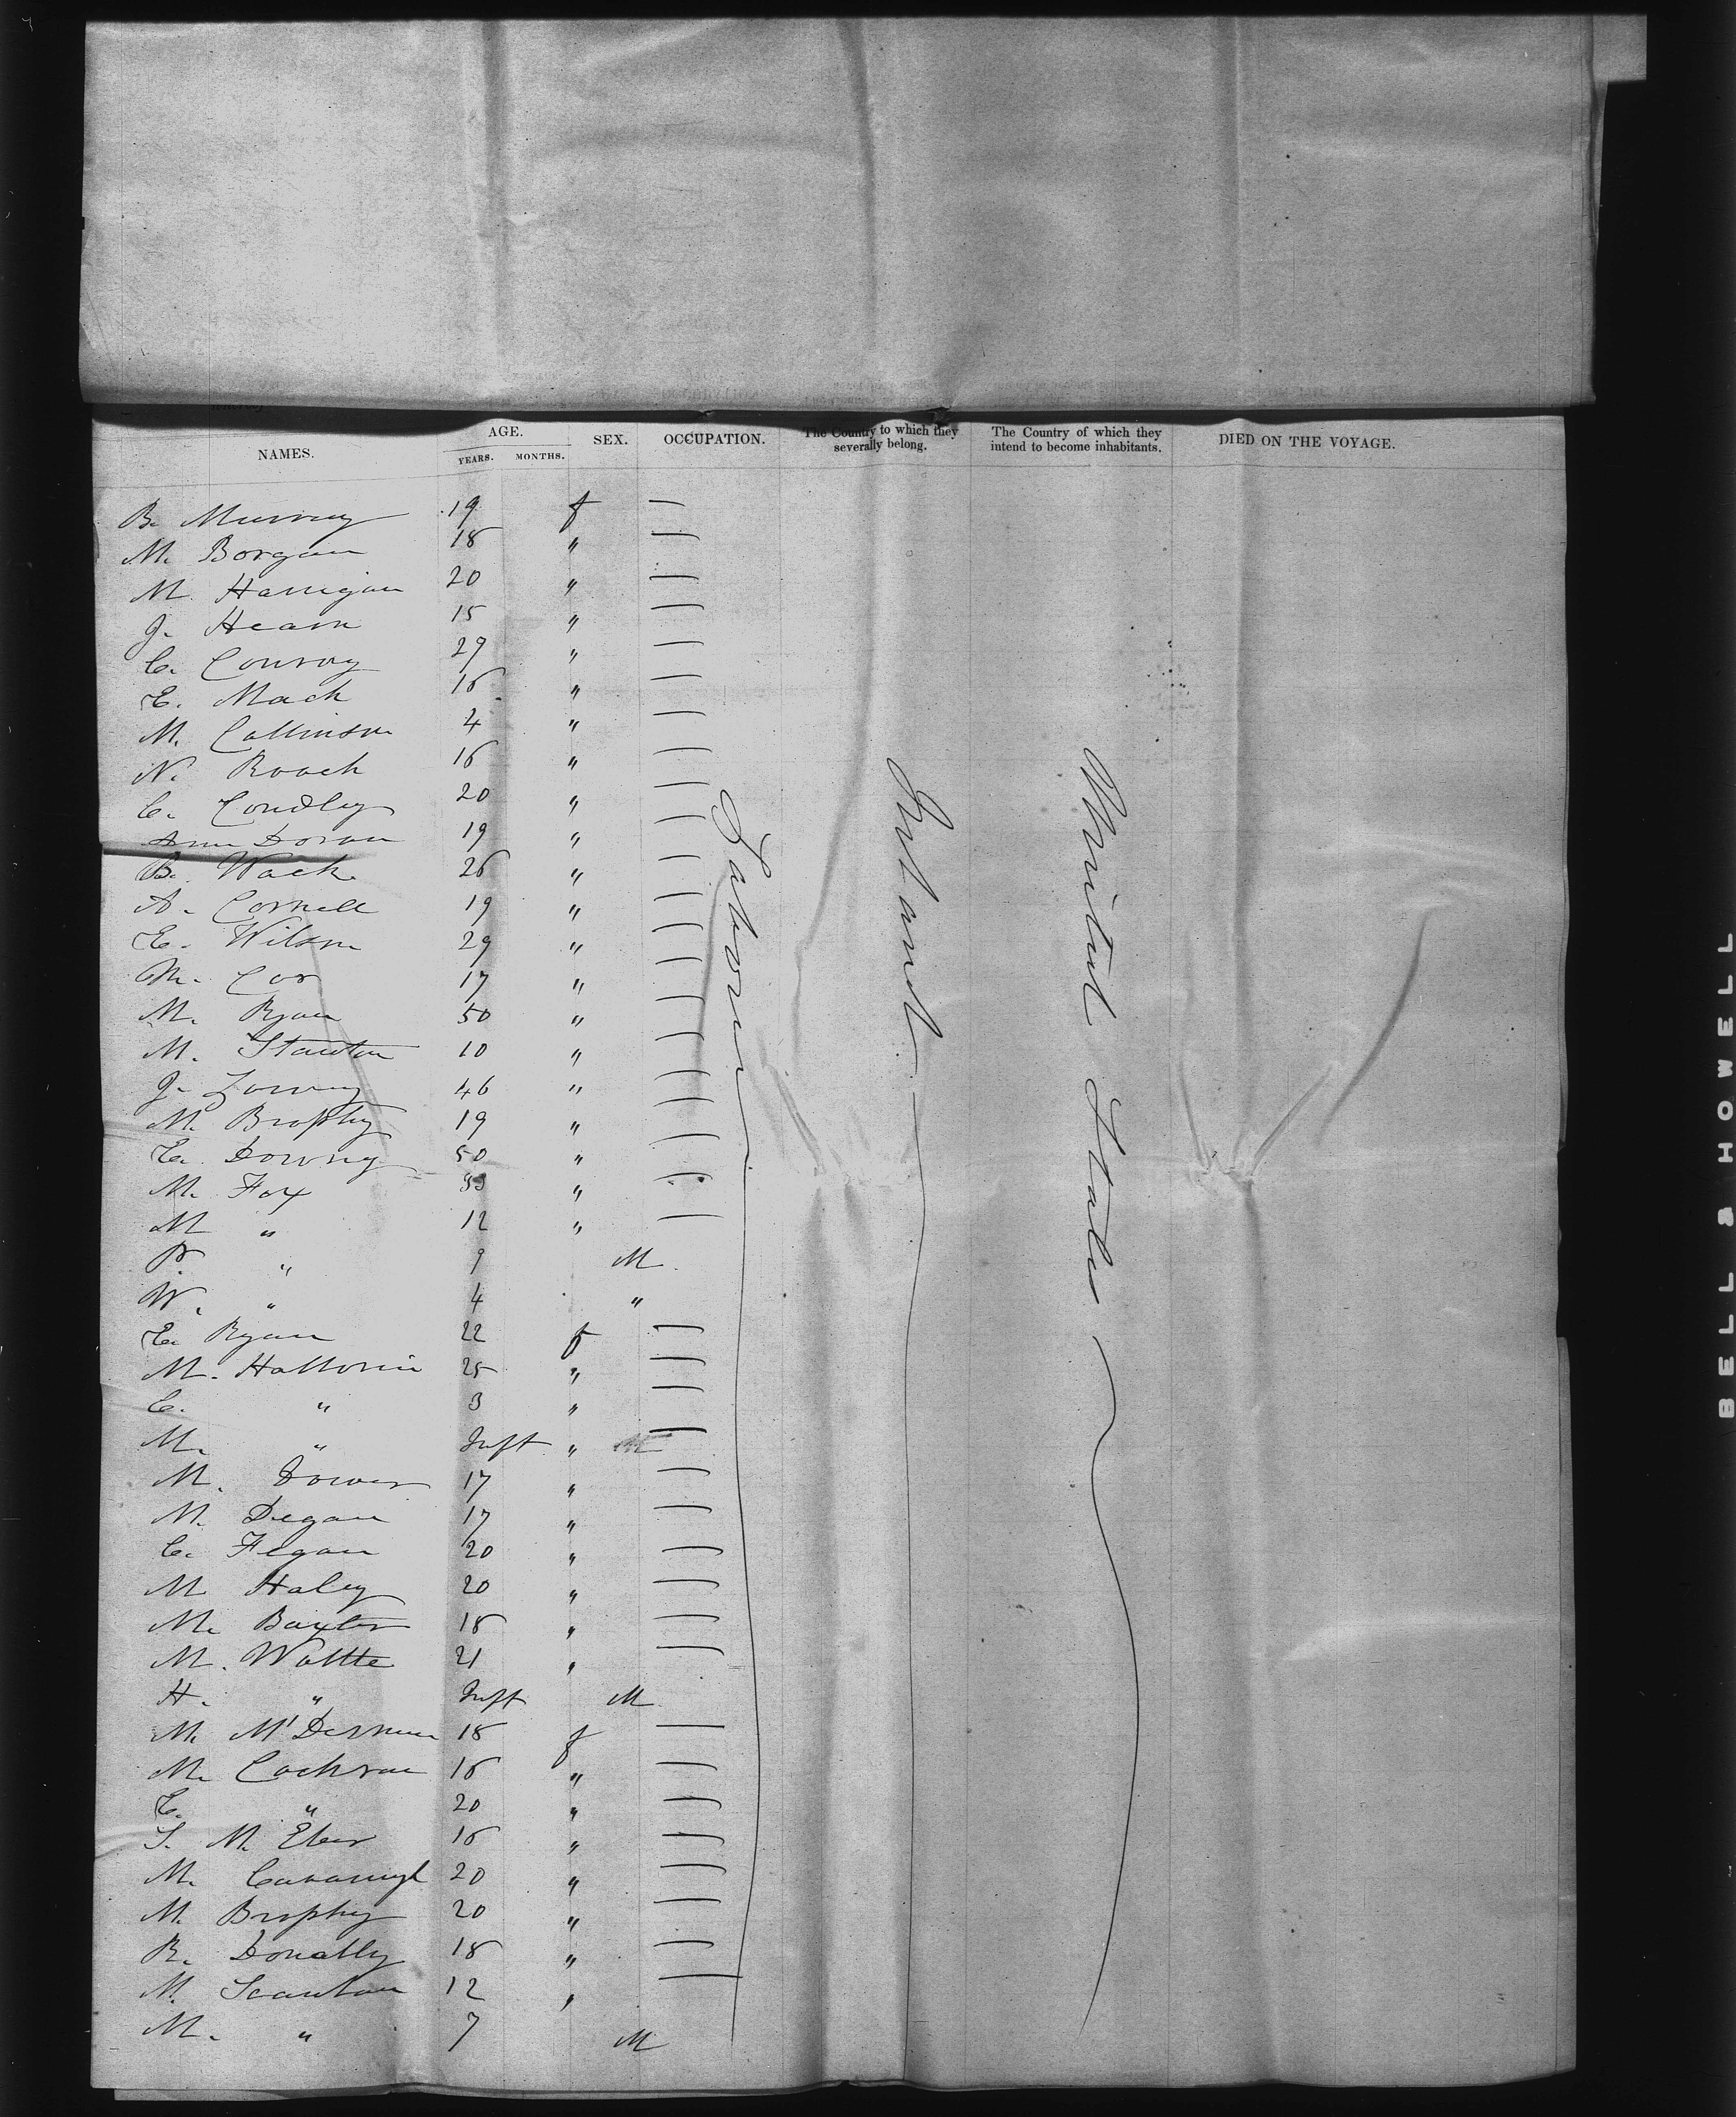 NAMES. AGE. YEARS. MONTHS. SEX. OCCUPATION. The Country to which they severally belong. The Country of which they intend to become inhabitants. DIED ON THE VOYAGE.
B. Murray 19 f —
M. Borgan 18 " —
M. Hanigan 20 " —
J. Hearn 15 " —
C. Conroy 29 " —
E. Mack 16 " —
M. Collinson 4 " —
N. Roach 16 " —
C. Condley 20 " —
Ann Doran 19 " —
B. Wack 26 " —
A. Cornell 19 " —
E. Wilson 29 " —
M. Cor 17 " —
M. Ryan 50 " —
M. Staunton 10 " —
J. Lowry 46 " —
M. Brophy 19 " —
E. Downey 50 " —
M. Fox 33 " —
M " 12 " —
P. " 9 M
W. " 4 "
E. Ryan 22 f —
M. Hallorin 25 " —
C. " 3 " —
M. " Inft " —
M. Dower 17 " —
M. Degan 17 " —
C. Fegan 20 " —
M Haley 20 " —
M. Baxter 18 " —
M. Waltte 21 " —
H. " Inft M
M. M'Dermen 18 f —
M. Cochran 16 " —
E. " 20 " —
S. M. Eber 16 " —
M. Cavanugh 20 " —
M. Brophy 20 " —
R. Donally 18 " —
M. Scanlan 12 " —
M. " 7 M
Laborer
Ireland
United States
BELL & HOWELL